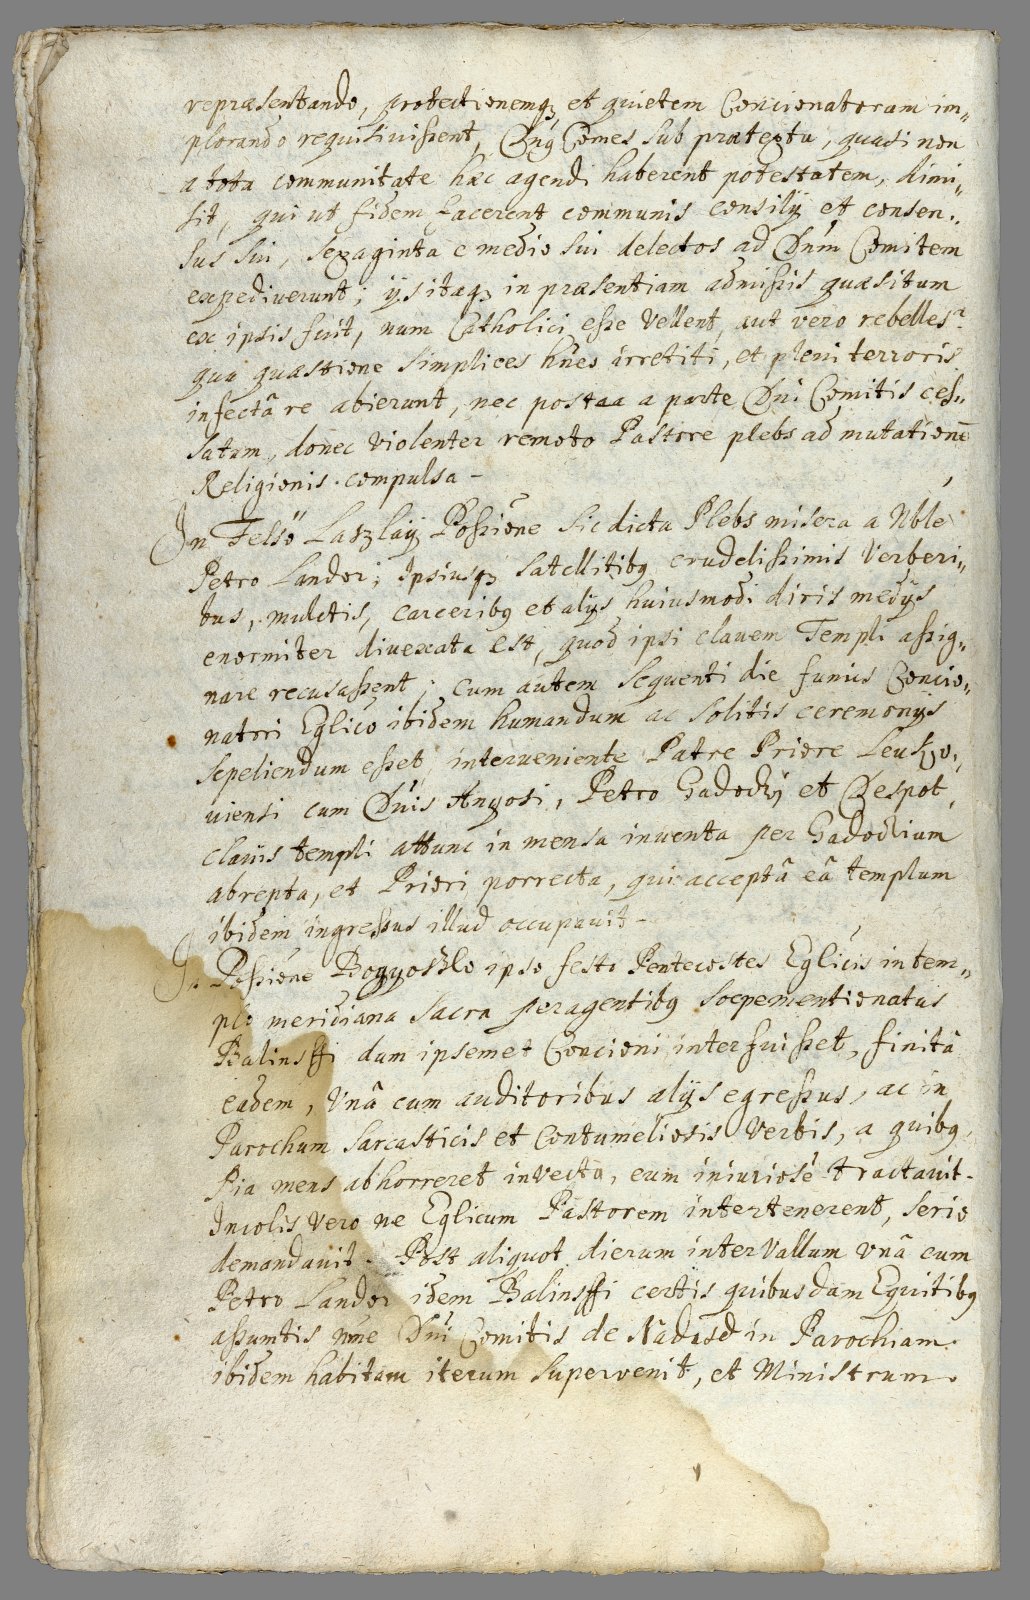 repraesentando, protectionemq₃ et quietem Concionatorum im„
plorando requisivissent, Dnꝰ Comes sub praetextu, quasi non
a tota communitate haec agendi haberent potestatem, dimi„
sit, qui ut fidem facerent communis consilij et consen„
sus sui, sexaginta e medio sui delectos ad Dnm̃ Comitem
expediverunt; ijs itaq₃ in praesentiam admissis quaesitum
ex ipsis fuit, num Catholici esse vellent, aut vero rebelles?
qua quaestione simplices hñes irretiti, et pleni terroris
infectâ re abierunt, nec postea a parte Dñi Comitis ces„
satum, donec violenter remoto Pastore plebs ad mutationẽ
Religionis compulsa –
In Felsö Laszlaÿ Possiõne sic dicta Plebs misera a Nble
Petro Landor; Ipsiusq₃ satellitibꝰ crudelissimis verberi„
bus, mulctis, carceribꝰ et alijs huiusmodi diris medijs
enormiter divexata est, quod ipsi clavem Templi assig„
nare recusassent; cum autem sequenti die funus Concio„
natori Eglico ibidem humandum ac solitis ceremonijs
sepeliendum esset, interveniente Patre Priore
viensi cum Dñis Angosi, Petro et Despot,
clavis templi attunc in mensa inventa per
abrepta, et Priori porrecta, qui acceptâ eâ templum
ibidem ingressus illud occupavit –
In Possiõne Bogyoszlo ipso festo Pentecostes Eglicis in tem„
plo meridiana sacra peragentibꝰ soepementionatus
Balinsffi dum ipsemet Concioni interfuisset, finitâ
eadem, unâ cum auditoribus alijs egressus, ac in
Parochum sarcasticis et contumeliosis verbis, a quibꝰ
Pia mens abhorreret invecto, eum iniuriosè tractavit.
Incolis vero ne Eglicum Pastorem intertenerent, serio
demandavit. Post aliquot dierum intervallum unâ cum
Petro Landor idem Balinsffi certis quibusdam Equitibꝰ
assumtis nñe Dñi Comitis de Nadasd in Parochiam
ibidem habitam iterum supervenit, et Ministrum